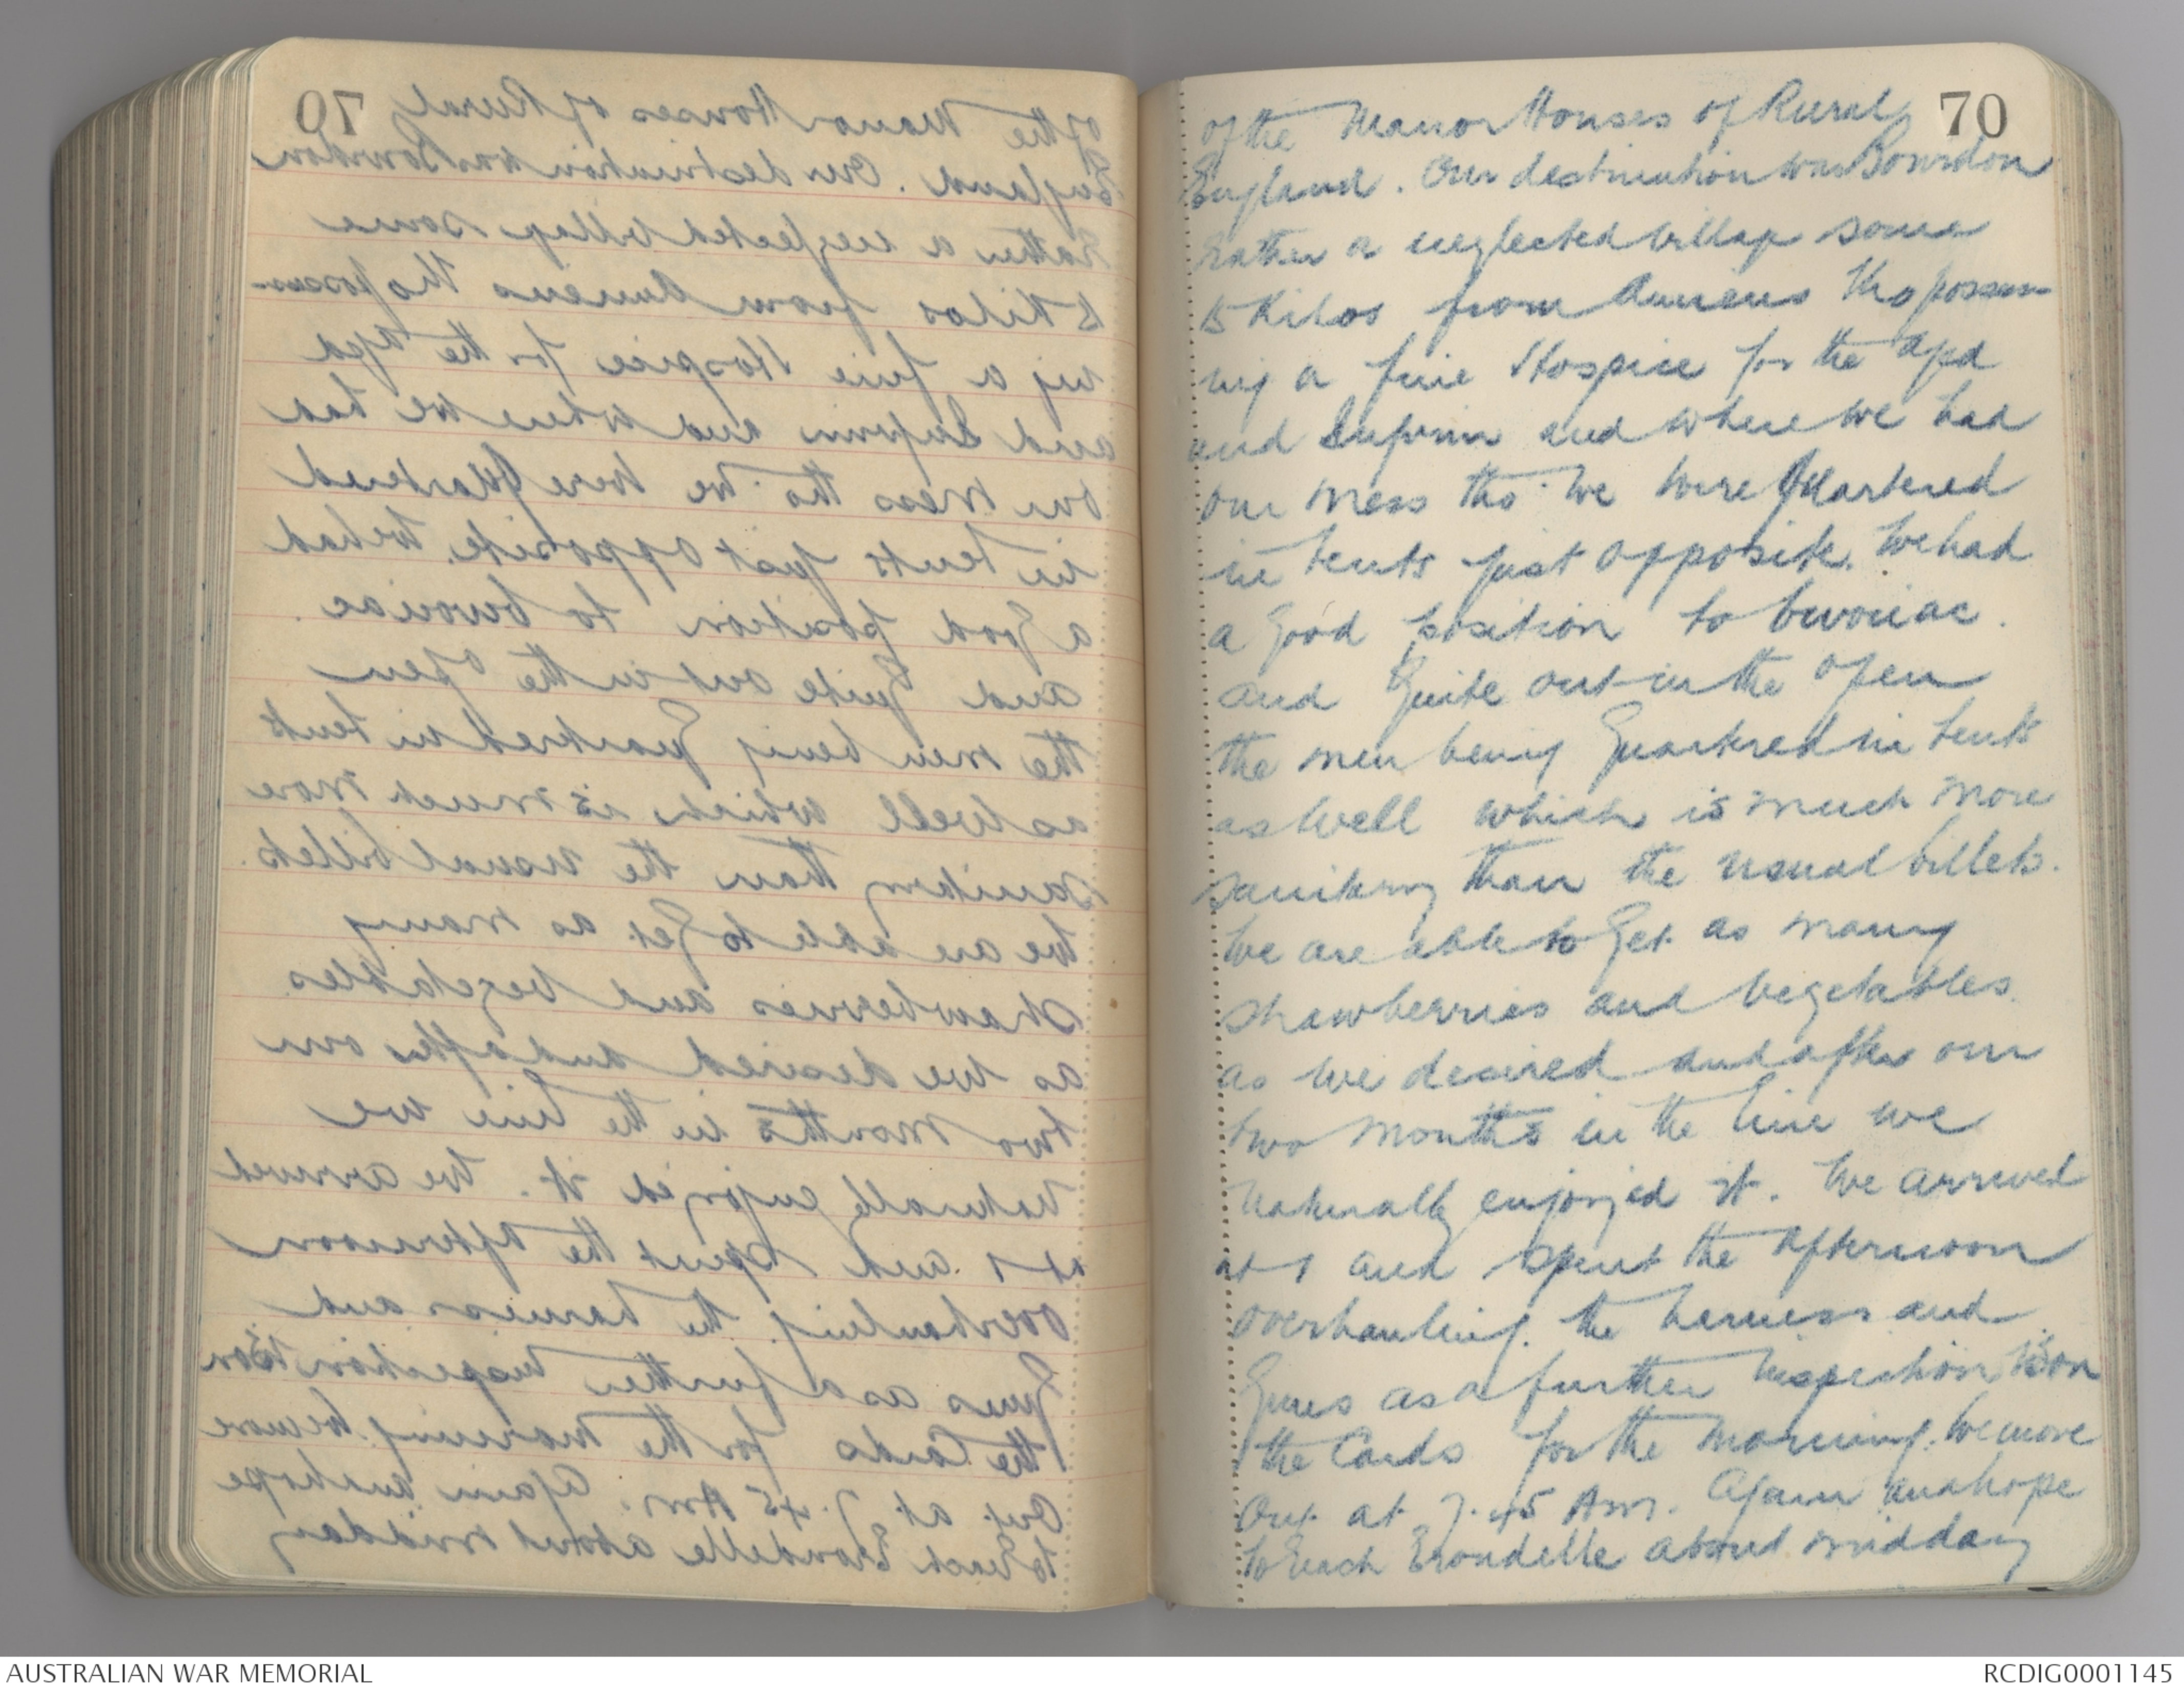 70
of the Manor Houses of Rural
England. Our destination was Bourdon
Rather a neglected village some
15 Kilos from Amiens tho possess-
ing a fine Hospice for the Aged
and Infirm and where we had
our mess tho' we were Quartered
in tents just opposite. We had
a good position to bivouac.
and Quite out in the open
the men being Quartered in tents
as well which is much more
sanitary than the usual billets.
We are able to Get as many
strawberries and vegetables
as we desired and after our
two months in the line we
naturally enjoyed it. We arrived
at 1 and spent the afternoon
overhauling the harness and
Guns as a further inspection is on
the Cards for the morning. We move
Out at 7.45 Am. Again and hope
to Reach Erondelle about midday
AUSTRALIAN WAR MEMORIAL
RCDIG0001145